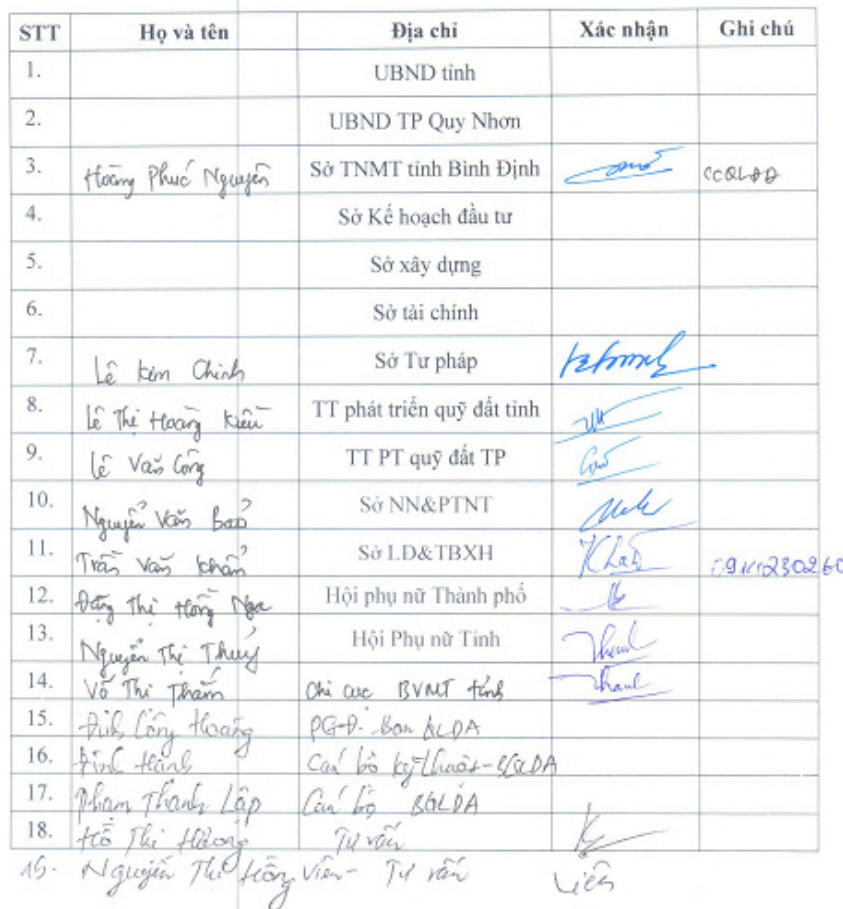 STT Họ và tên Địa chỉ Xác nhận Ghi chú
1. UBND tỉnh
2. UBND TP Quy Nhơn
3. Hoàng Phúc Nguyên Sở TNMT tỉnh Bình Định CCQLĐĐ
4. Sở Kế hoạch đầu tư
5. Sở xây dựng
6. Sở tài chính
7. Lê Kim Chinh Sở Tư pháp
8. Lê Thị Hoàng Kiều TT phát triển quỹ đất tỉnh
9. Lê Văn Công TT PT quỹ đất TP
10. Nguyễn Văn Bảo Sở NN&PTNT
11. Trần Văn Khẩn Sở LĐ&TBXH
12. Đặng Thị Hồng Nga Hội phụ nữ Thành phố
13. Nguyễn Thị Thúy Hội Phụ nữ Tỉnh
14. Võ Thị Thắm Chi cục BVMT tỉnh
15. Đinh Công Hoàng PGĐ. Ban QLDA
16. Cán bộ kỹ thuật - BQLDA
17. Phạm Thanh Lập Cán bộ BQLDA
18. Hồ Thị Hương Tư vấn
19- Nguyễn Thị Hồng Viên - Tư vấn Viên